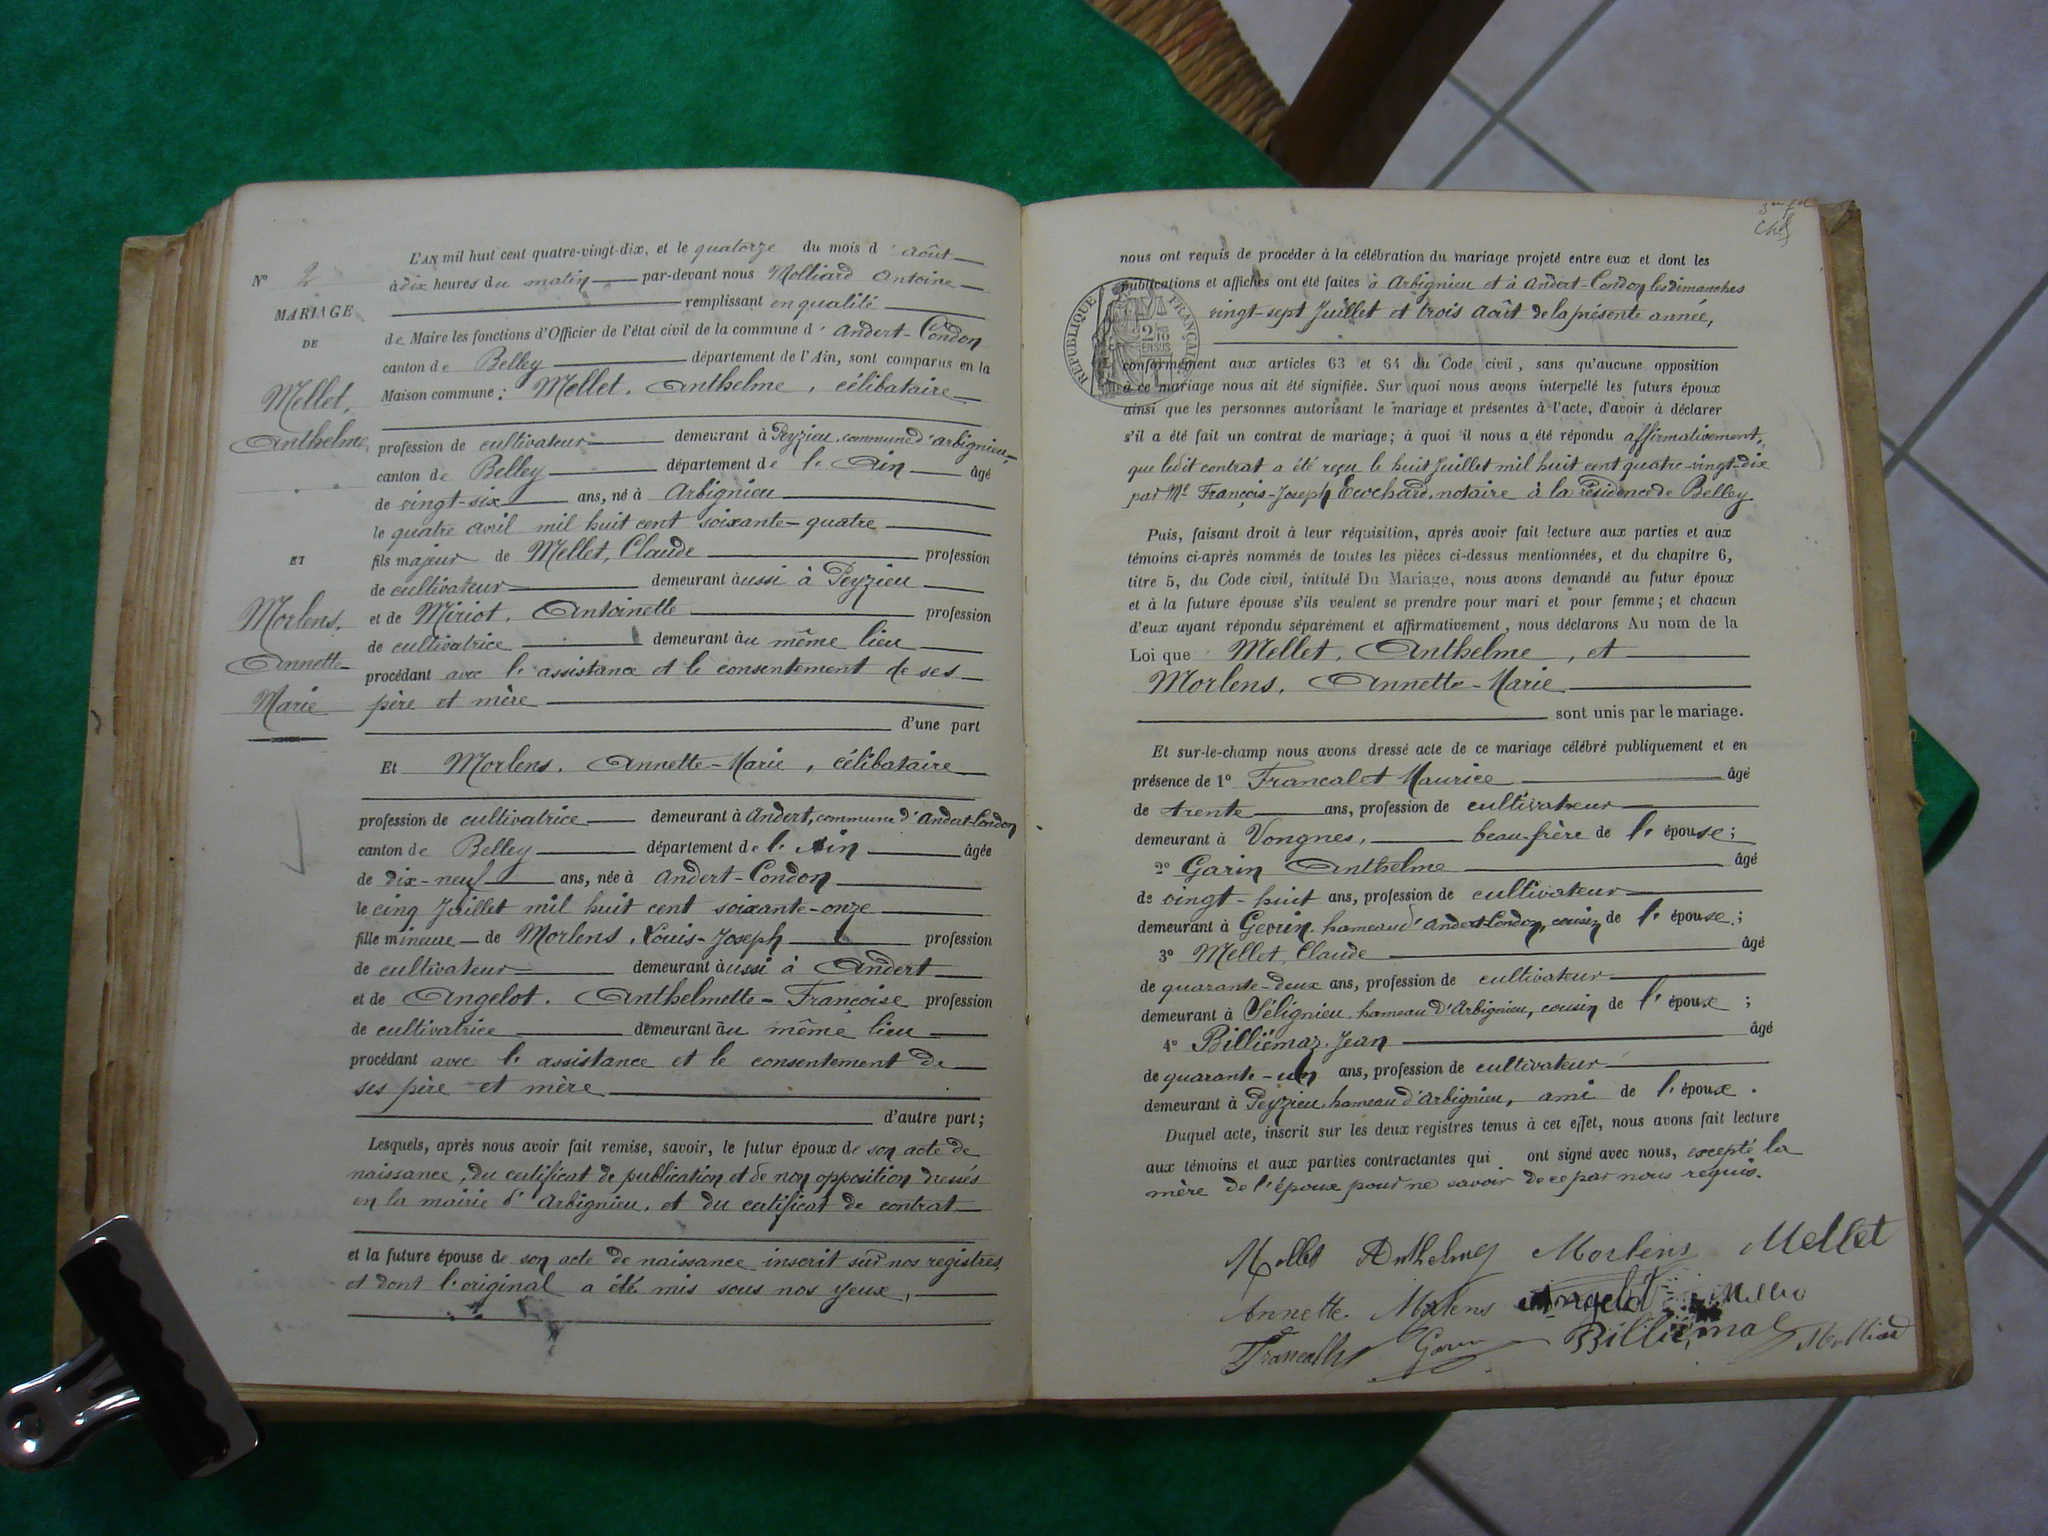 N° 2
MARIAGE
DE
Mellet,
Anthelme,
ET
Morlens,
Annette
Marie
L'AN mil huit cent quatre-vingt-dix, et le quatorze du mois d'août
à dix heures du matin par-devant nous Molliard Antoine
remplissant en qualité
de Maire les fonctions d'Officier de l'état civil de la commune d'Andert-Condon
canton de Belley département de l'Ain, sont comparus en la
Maison commune : Mellet, Anthelme, célibataire
profession de cultivateur demeurant à Peyzieu, commune d'Arbignieu,
canton de Belley département de l'Ain âgé
de vingt-six ans, né à Arbignieu
le quatre avril mil huit cent soixante-quatre
fils majeur de Mellet, Claude profession
de cultivateur demeurant aussi à Peyzieu
et de Miriot, Antoinette profession
de cultivatrice demeurant au même lieu
procédant avec l'assistance et le consentement de ses
père et mère
d'une part
Et Morlens, Annette-Marie, célibataire
profession de cultivatrice demeurant à Andert, commune d'Andert-Condon
canton de Belley département de l'Ain âgée
de dix-neuf ans, née à Andert-Condon
le cinq Juillet mil huit cent soixante-onze
fille mineure de Morlens, Louis-Joseph profession
de cultivateur demeurant aussi à Andert
et de Angelot, Anthelmette-Françoise profession
de cultivatrice demeurant au même lieu
procédant avec l'assistance et le consentement de
ses père et mère
d'autre part ;
Lesquels, après nous avoir fait remise, savoir, le futur époux de son acte de
naissance, du certificat de publication et de non opposition dressés
en la mairie d'Arbignieu, et du certificat de contrat
et la future épouse de son acte de naissance inscrit sur nos registres,
et dont l'original a été mis sous nos yeux,
nous ont requis de procéder à la célébration du mariage projeté entre eux et dont les
publications et affiches ont été faites à Arbignieu et à Andert-Condon les dimanches
vingt-sept Juillet et trois août de la présente année,
RÉPUBLIQUE FRANÇAISE
conformément aux articles 63 et 64 du Code civil, sans qu'aucune opposition
à ce mariage nous ait été signifiée. Sur quoi nous avons interpellé les futurs époux
ainsi que les personnes autorisant le mariage et présentes à l'acte, d'avoir à déclarer
s'il a été fait un contrat de mariage ; à quoi il nous a été répondu affirmativement,
que ledit contrat a été reçu le huit Juillet mil huit cent quatre-vingt-dix
par Me François-Joseph Ecochard, notaire à la résidence de Belley
Puis, faisant droit à leur réquisition, après avoir fait lecture aux parties et aux
témoins ci-après nommés de toutes les pièces ci-dessus mentionnées, et du chapitre 6,
titre 5, du Code civil, intitulé Du Mariage, nous avons demandé au futur époux
et à la future épouse s'ils veulent se prendre pour mari et pour femme ; et chacun
d'eux ayant répondu séparément et affirmativement, nous déclarons Au nom de la
Loi que Mellet, Anthelme, et
Morlens, Annette-Marie
sont unis par le mariage.
Et sur-le-champ nous avons dressé acte de ce mariage célébré publiquement et en
présence de 1° Francalet Maurice âgé
de trente ans, profession de cultivateur
demeurant à Vongnes, beau-frère de l'épouse ;
2° Garin Anthelme âgé
de vingt-huit ans, profession de cultivateur
demeurant à Gevrin, hameau d'Andert-Condon, cousin de l'épouse ;
3° Mellet, Claude âgé
de quarante-deux ans, profession de cultivateur
demeurant à Sélignieu, hameau d'Arbignieu, cousin de l'époux ;
4° Billiémaz, Jean âgé
de quarante-un ans, profession de cultivateur
demeurant à Peyzieu, hameau d'Arbignieu, ami de l'époux.
Duquel acte, inscrit sur les deux registres tenus à cet effet, nous avons fait lecture
aux témoins et aux parties contractantes qui ont signé avec nous, excepté la
mère de l'époux pour ne savoir de ce par nous requis.
Mellet Anthelme Morlens Mellet
Annette Morlens Angelot Mellet
Francalet Garin Billiémaz Molliard